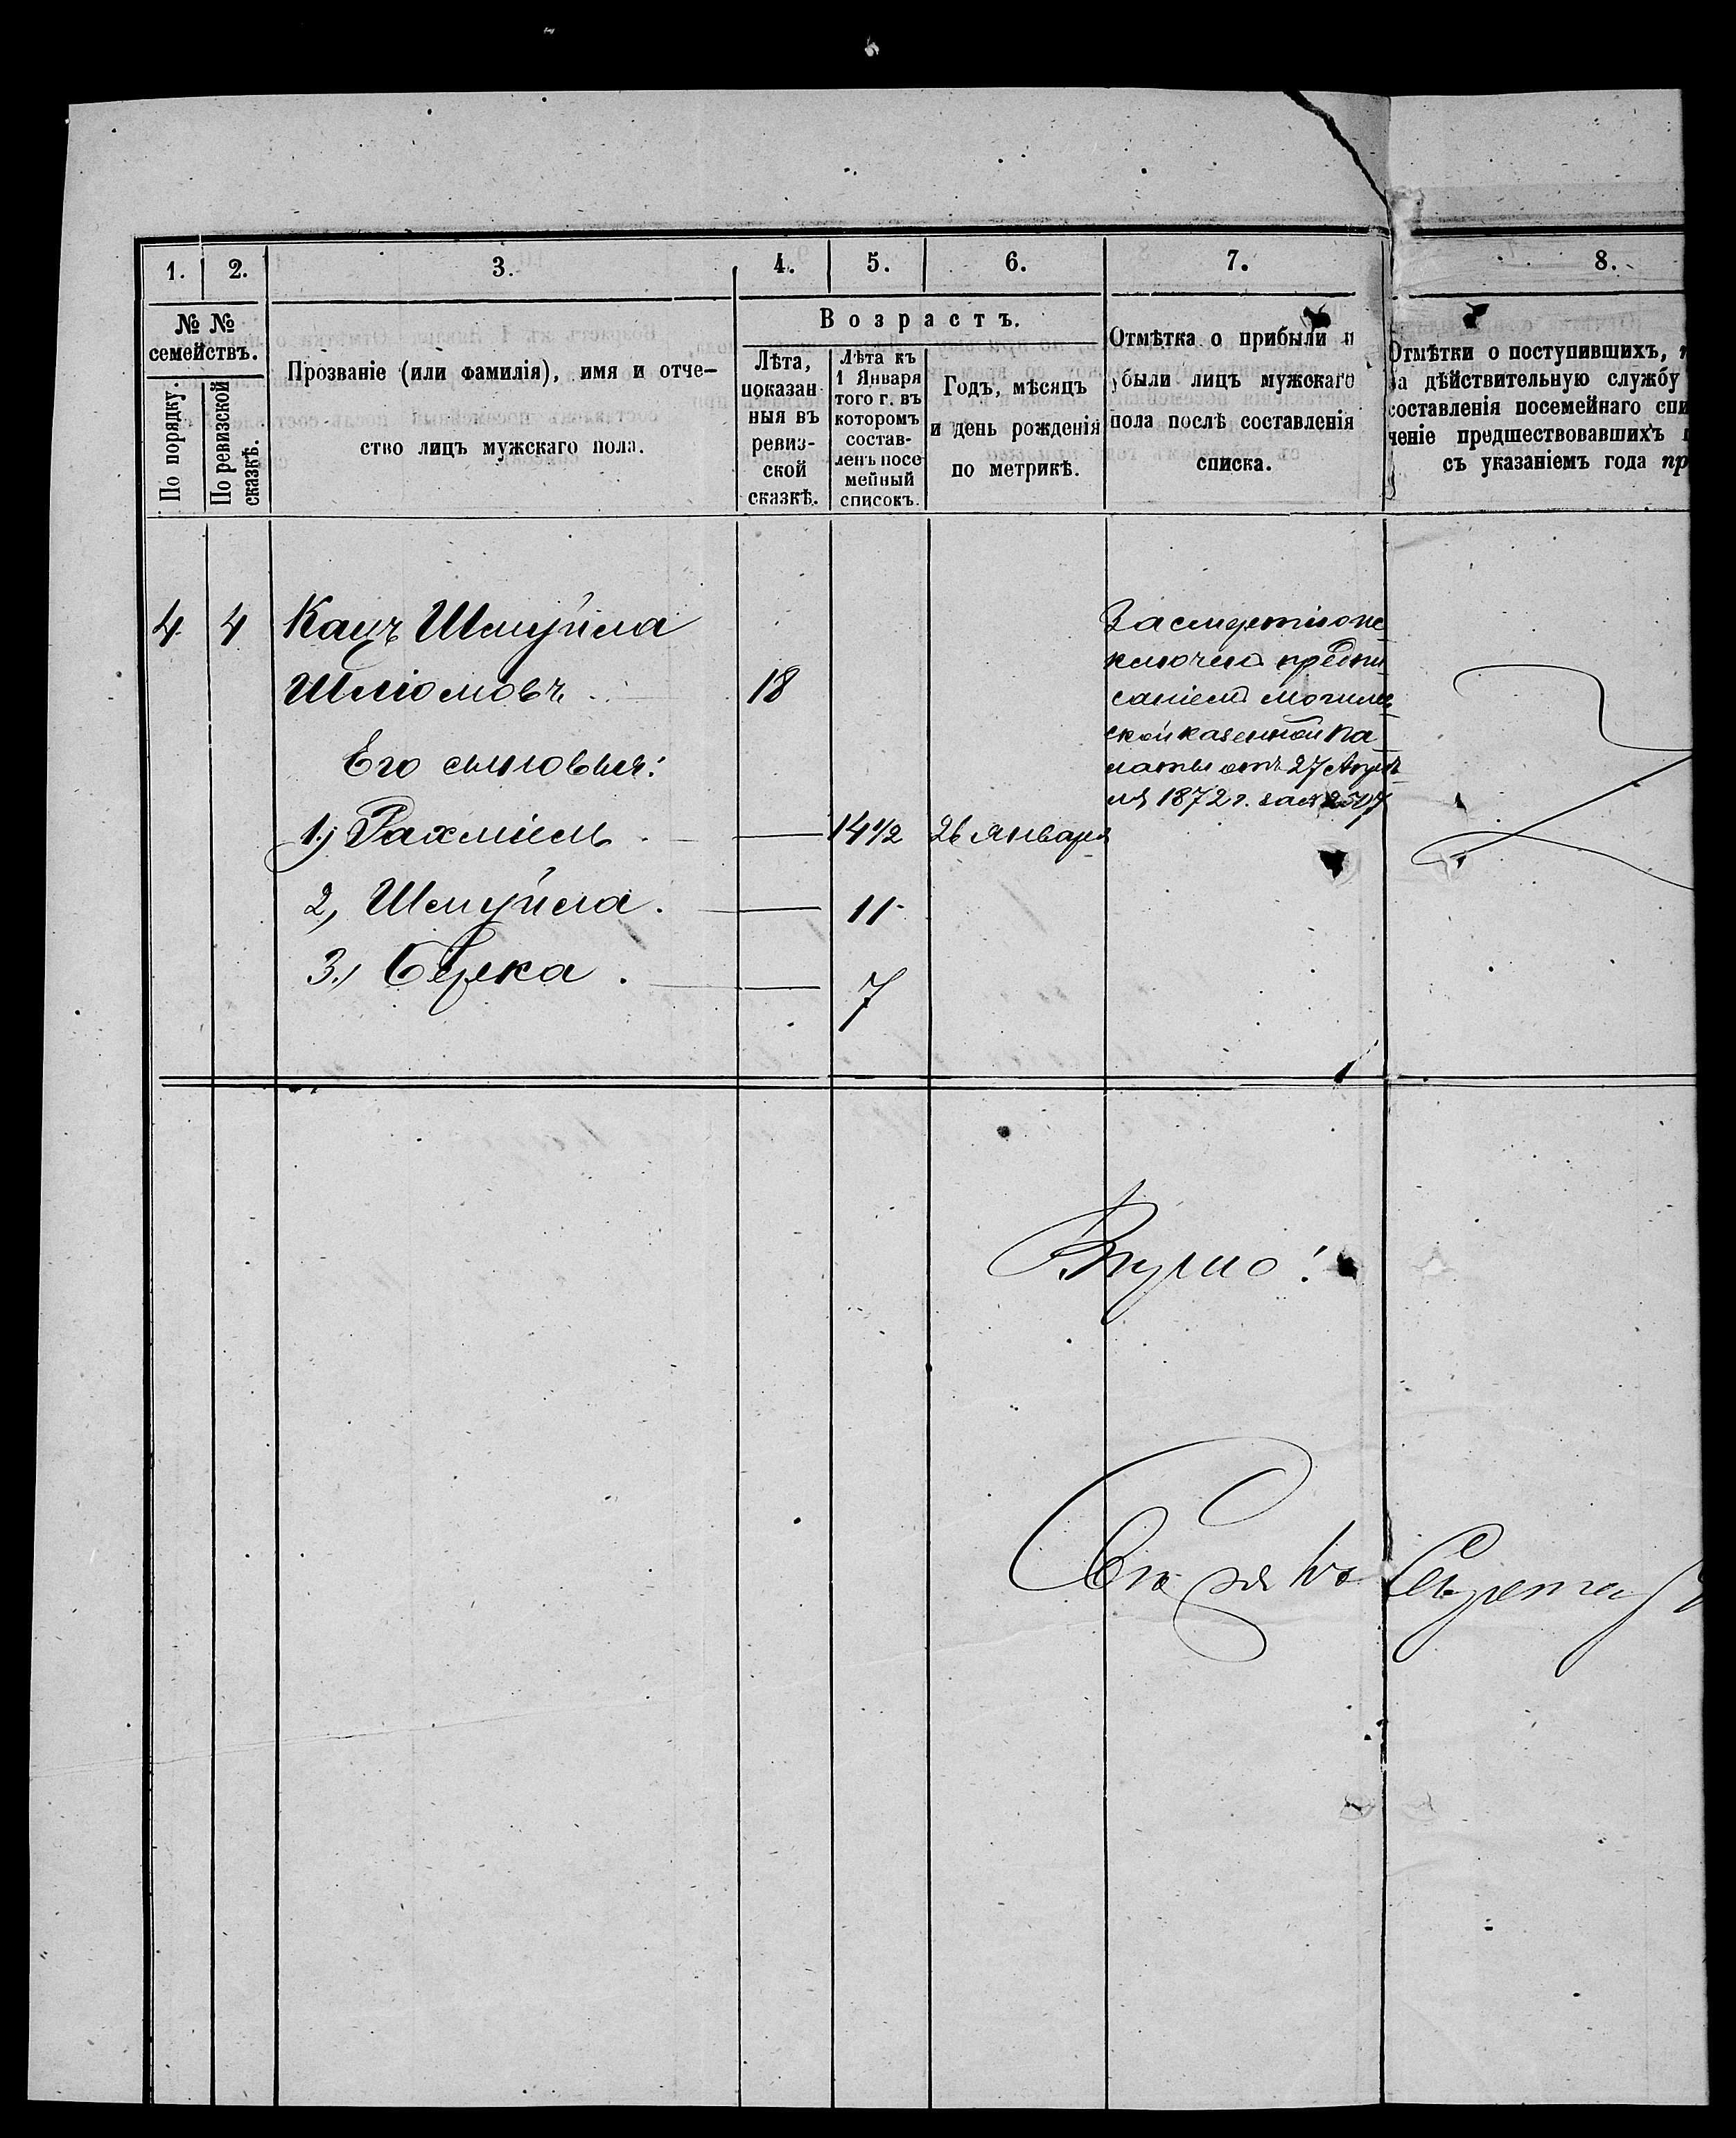 1.
2.
3.
4.
5.
6.
7.
8.
№ №
семействъ.
По порядку.
По ревизской
сказкѣ.
Прозваніе (или фамилія), имя и отче-
ство лицъ мужскаго пола.
Возрастъ.
Лѣта,
показан
ныя въ
ревиз-
ской
сказкѣ.
Лѣта къ
1 Января
того г. въ
которомъ
состав-
ленъ посе
мейный
списокъ.
Годъ, мѣсяцъ
и день рожденія
по метрикѣ.
Отмѣтка о прибыли и
убыли лицъ мужскаго
пола послѣ составленія
списка.
Отмѣтки о поступившихъ,
за дѣйствительную службу
составленія посемейнаго спи
ченіе предшествовавшихъ
съ указаніемъ года пр
4. 4 Кацъ Шмуйла
Шліомовъ . 18
Его сыновья:
1.) Рахміель . — 14 1/2 26 Января
2, Шмуйла . — 11
3., Берка . — 7
За смертію ис
ключенъ предпи
саніемъ Могилев
ской Казенной Па
латы отъ 27 Апрѣ
ля 1872 г. за №
Секретарь